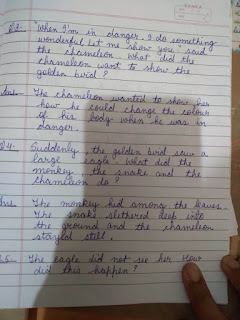 Q3. "When I'm in danger, I do something
wonderful Let me show you" said
the chameleon. What did the
chameleon want to show the
golden bird?
Ans- The chameleon wanted to show her
how he could change the colour
of his body when he was in
danger.
Q4. Suddenly, the golden bird saw a
large eagle. What did the
monkey, the snake and the
chameleon do?
Ans. The monkey hid among the leaves.
The snake slithered deep into
the ground and the chameleon
stayed still.
Q.5. The eagle did not see her How
did this happen?